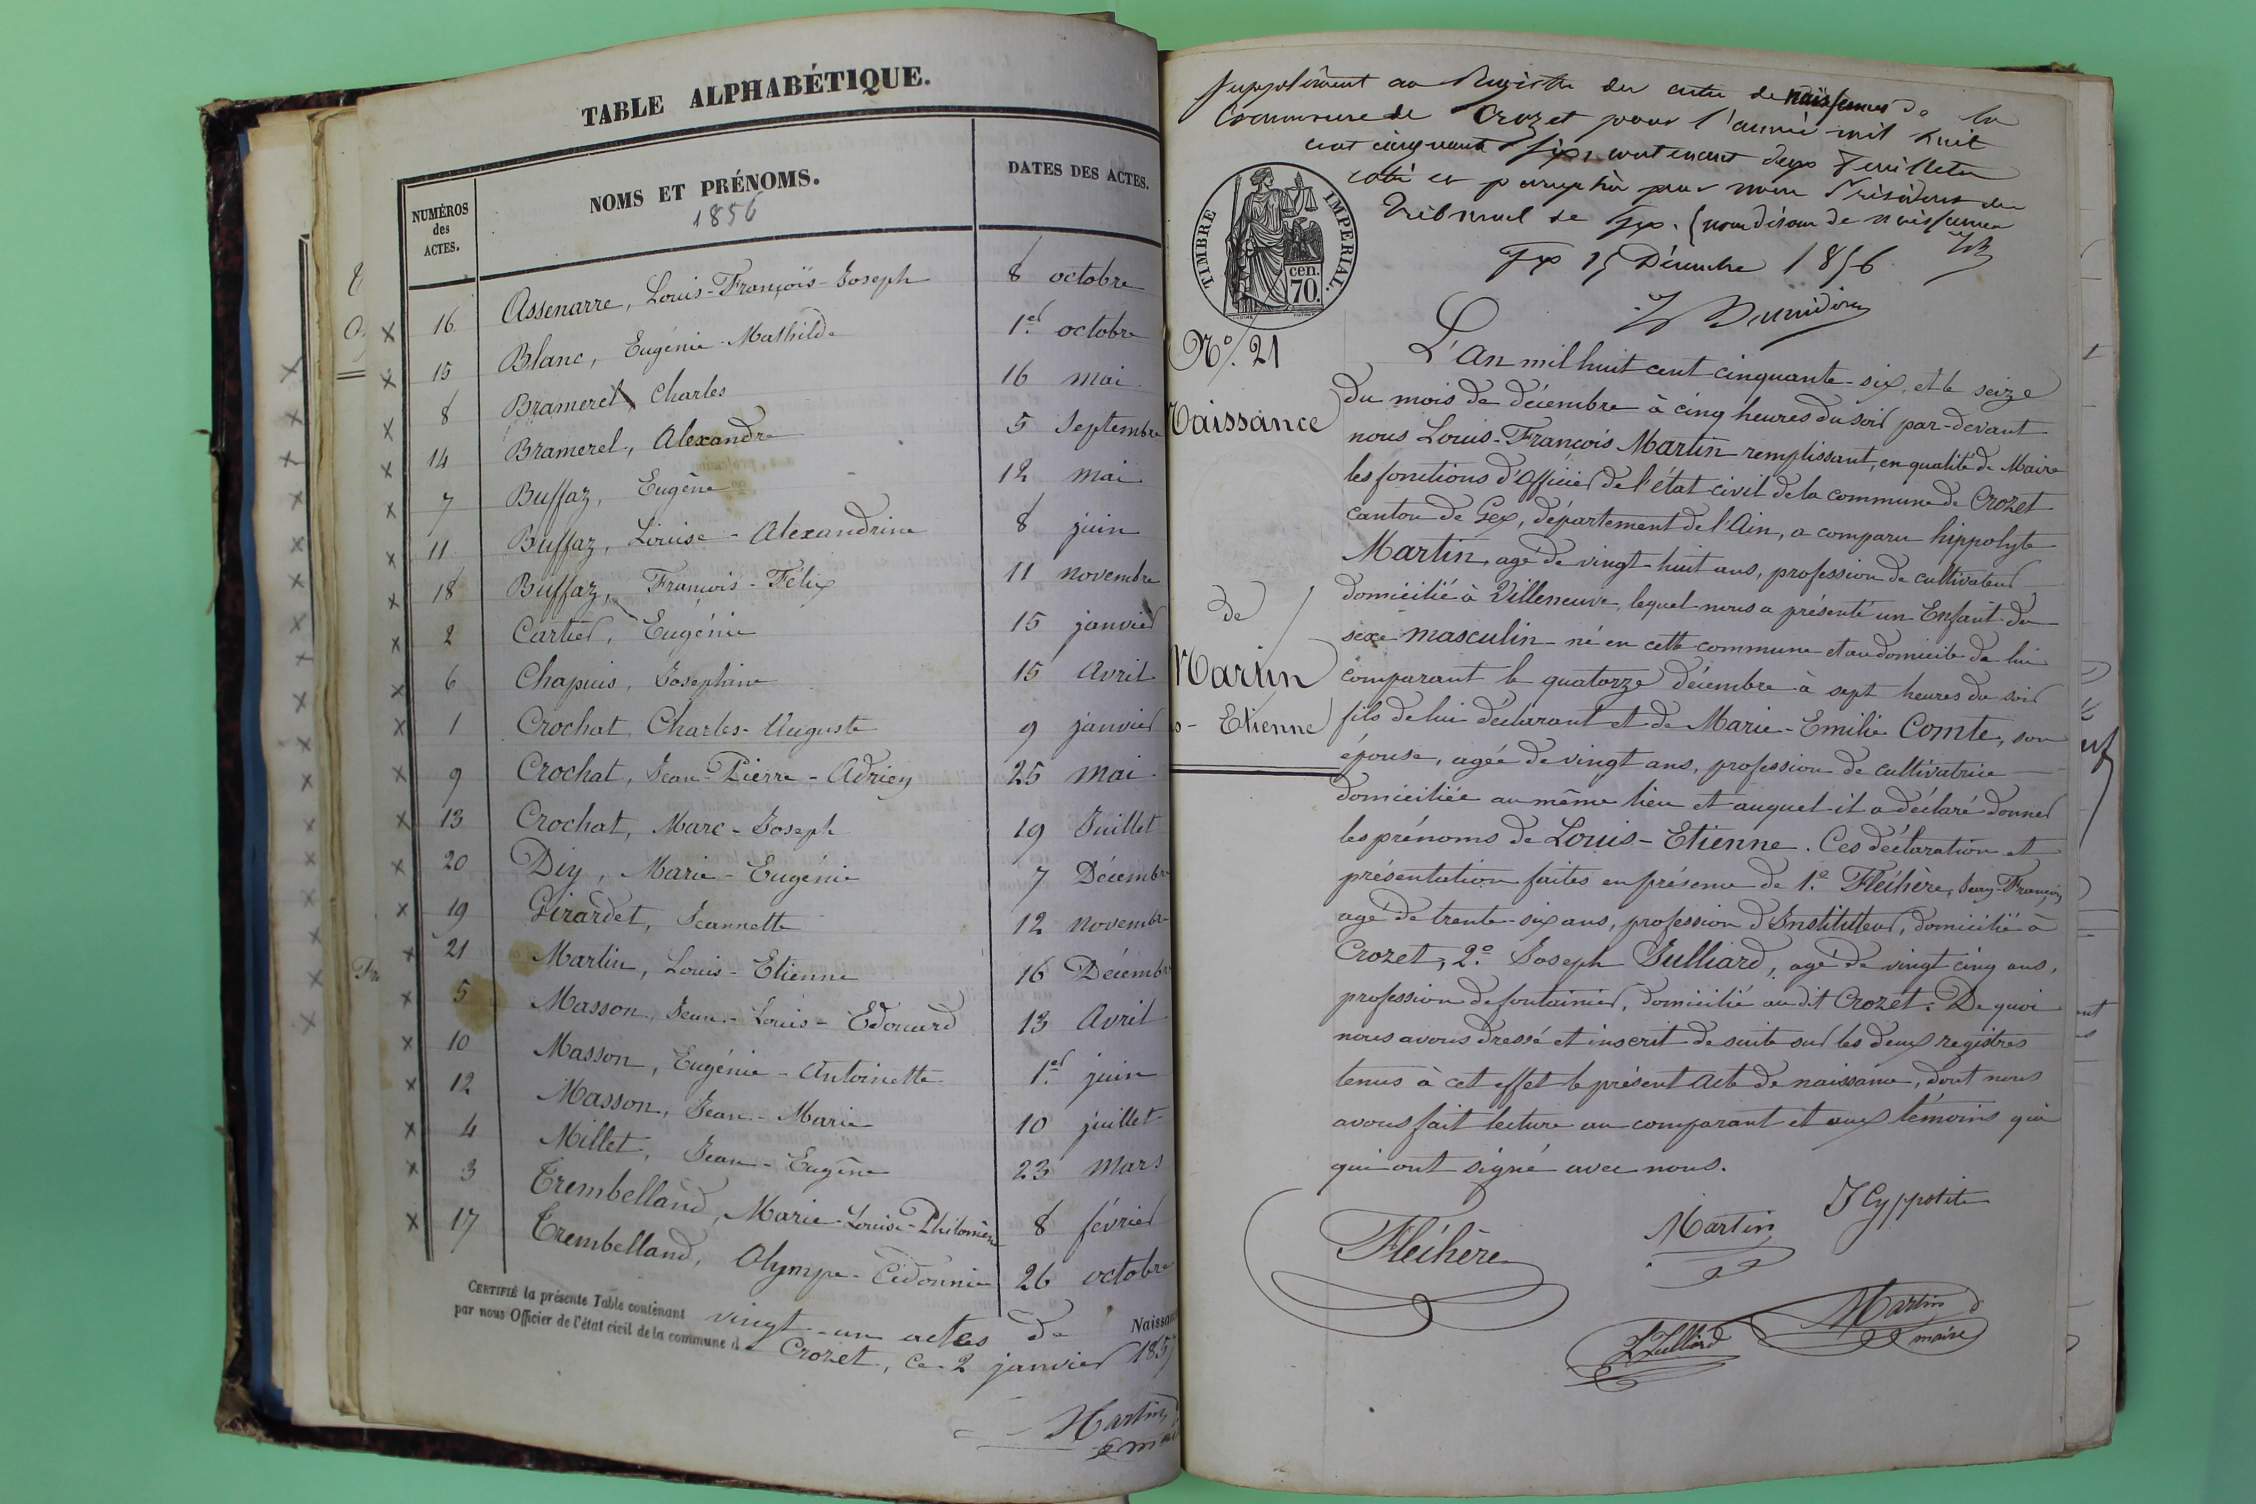 TABLE ALPHABÉTIQUE.
NUMÉROS
des
ACTES.
NOMS ET PRÉNOMS.
1856
DATES DES ACTES.
16 Assenarre, Louis-François-Joseph 8 octobre
15 Blanc, Eugénie-Mathilde 1er octobre
8 Bramerel, Charles 16 mai
14 Bramerel, Alexandre 5 Septembre
7 Buffaz, Eugène 12 mai
11 Buffaz, Louise-Alexandrine 8 juin
18 Buffaz, François-Félix 11 novembre
2 Cartier, Eugénie 15 janvier
6 Chapuis, Josephine 15 Avril
1 Crochat, Charles-Auguste 9 janvier
9 Crochat, Jean-Pierre-Adrien 25 mai
13 Crochat, Marc-Joseph 19 Juillet
20 Diy, Marie-Eugénie 7 Décembre
19 Girardet, Jeannette 12 novembre
21 Martin, Louis-Etienne 16 Décembre
5 Masson, Jean-Louis-Edouard 13 Avril
10 Masson, Eugénie-Antoinette 1er juin
12 Masson, Jean-Marie 10 juillet
4 Millet, Jean-Eugène 23 Mars
3 Trembelland, Marie-Louise-Philomène 8 février
17 Trembelland, Olympe-Cédonnie 26 octobre
CERTIFIÉ la présente Table contenant vingt-un actes de Naissance
par nous Officier de l'état civil de la commune d Crozet, ce 2 janvier 1857
Martin
Supplément au Registre des actes de naissances de la
Commune de Crozet pour l'année mil huit
cent cinquante six, contenant deux feuillets
coté et paraphé par nous Président du
Tribunal de Gex. (nous disons de naissances
Gex 15 Décembre 1856
TIMBRE IMPÉRIAL.
70. cen.
N° 21
Naissance
de
Martin
s-Etienne
L'An mil huit cent cinquante-six, et le seize
du mois de décembre à cinq heures du soir par-devant
nous Louis-François Martin remplissant, en qualité de Maire
les fonctions d'Officier de l'état civil de la commune de Crozet
canton de Gex, département de l'Ain, a comparu hippolyte
Martin, agé de vingt-huit ans, profession de cultivateur
domicilié à Villeneuve, lequel nous a présenté un Enfant du
sexe masculin né en cette commune et au domicile de lui
comparant le quatorze décembre à sept heures du soir
fils de lui déclarant et de Marie-Emilie Comte, son
épouse, agée de vingt ans, profession de cultivatrice
domiciliée au même lieu et auquel il a déclaré donner
les prénoms de Louis-Etienne. Ces déclaration et
présentation faites en présence de 1.e Fléchère, Jean-François
agé de trente-six ans, profession d'Instituteur, domicilié à
Crozet, 2.° Joseph Julliard, agé de vingt cinq ans,
profession de fontainier, domicilié au dit Crozet. De quoi
nous avons dressé et inscrit de suite sur les deux registres
tenus à cet effet le présent Acte de naissance, dont nous
avons fait lecture au comparant et aux témoins qui
qui ont signé avec nous.
Fléchère
Martin Hyppolite
J Julliard
Martin
maire